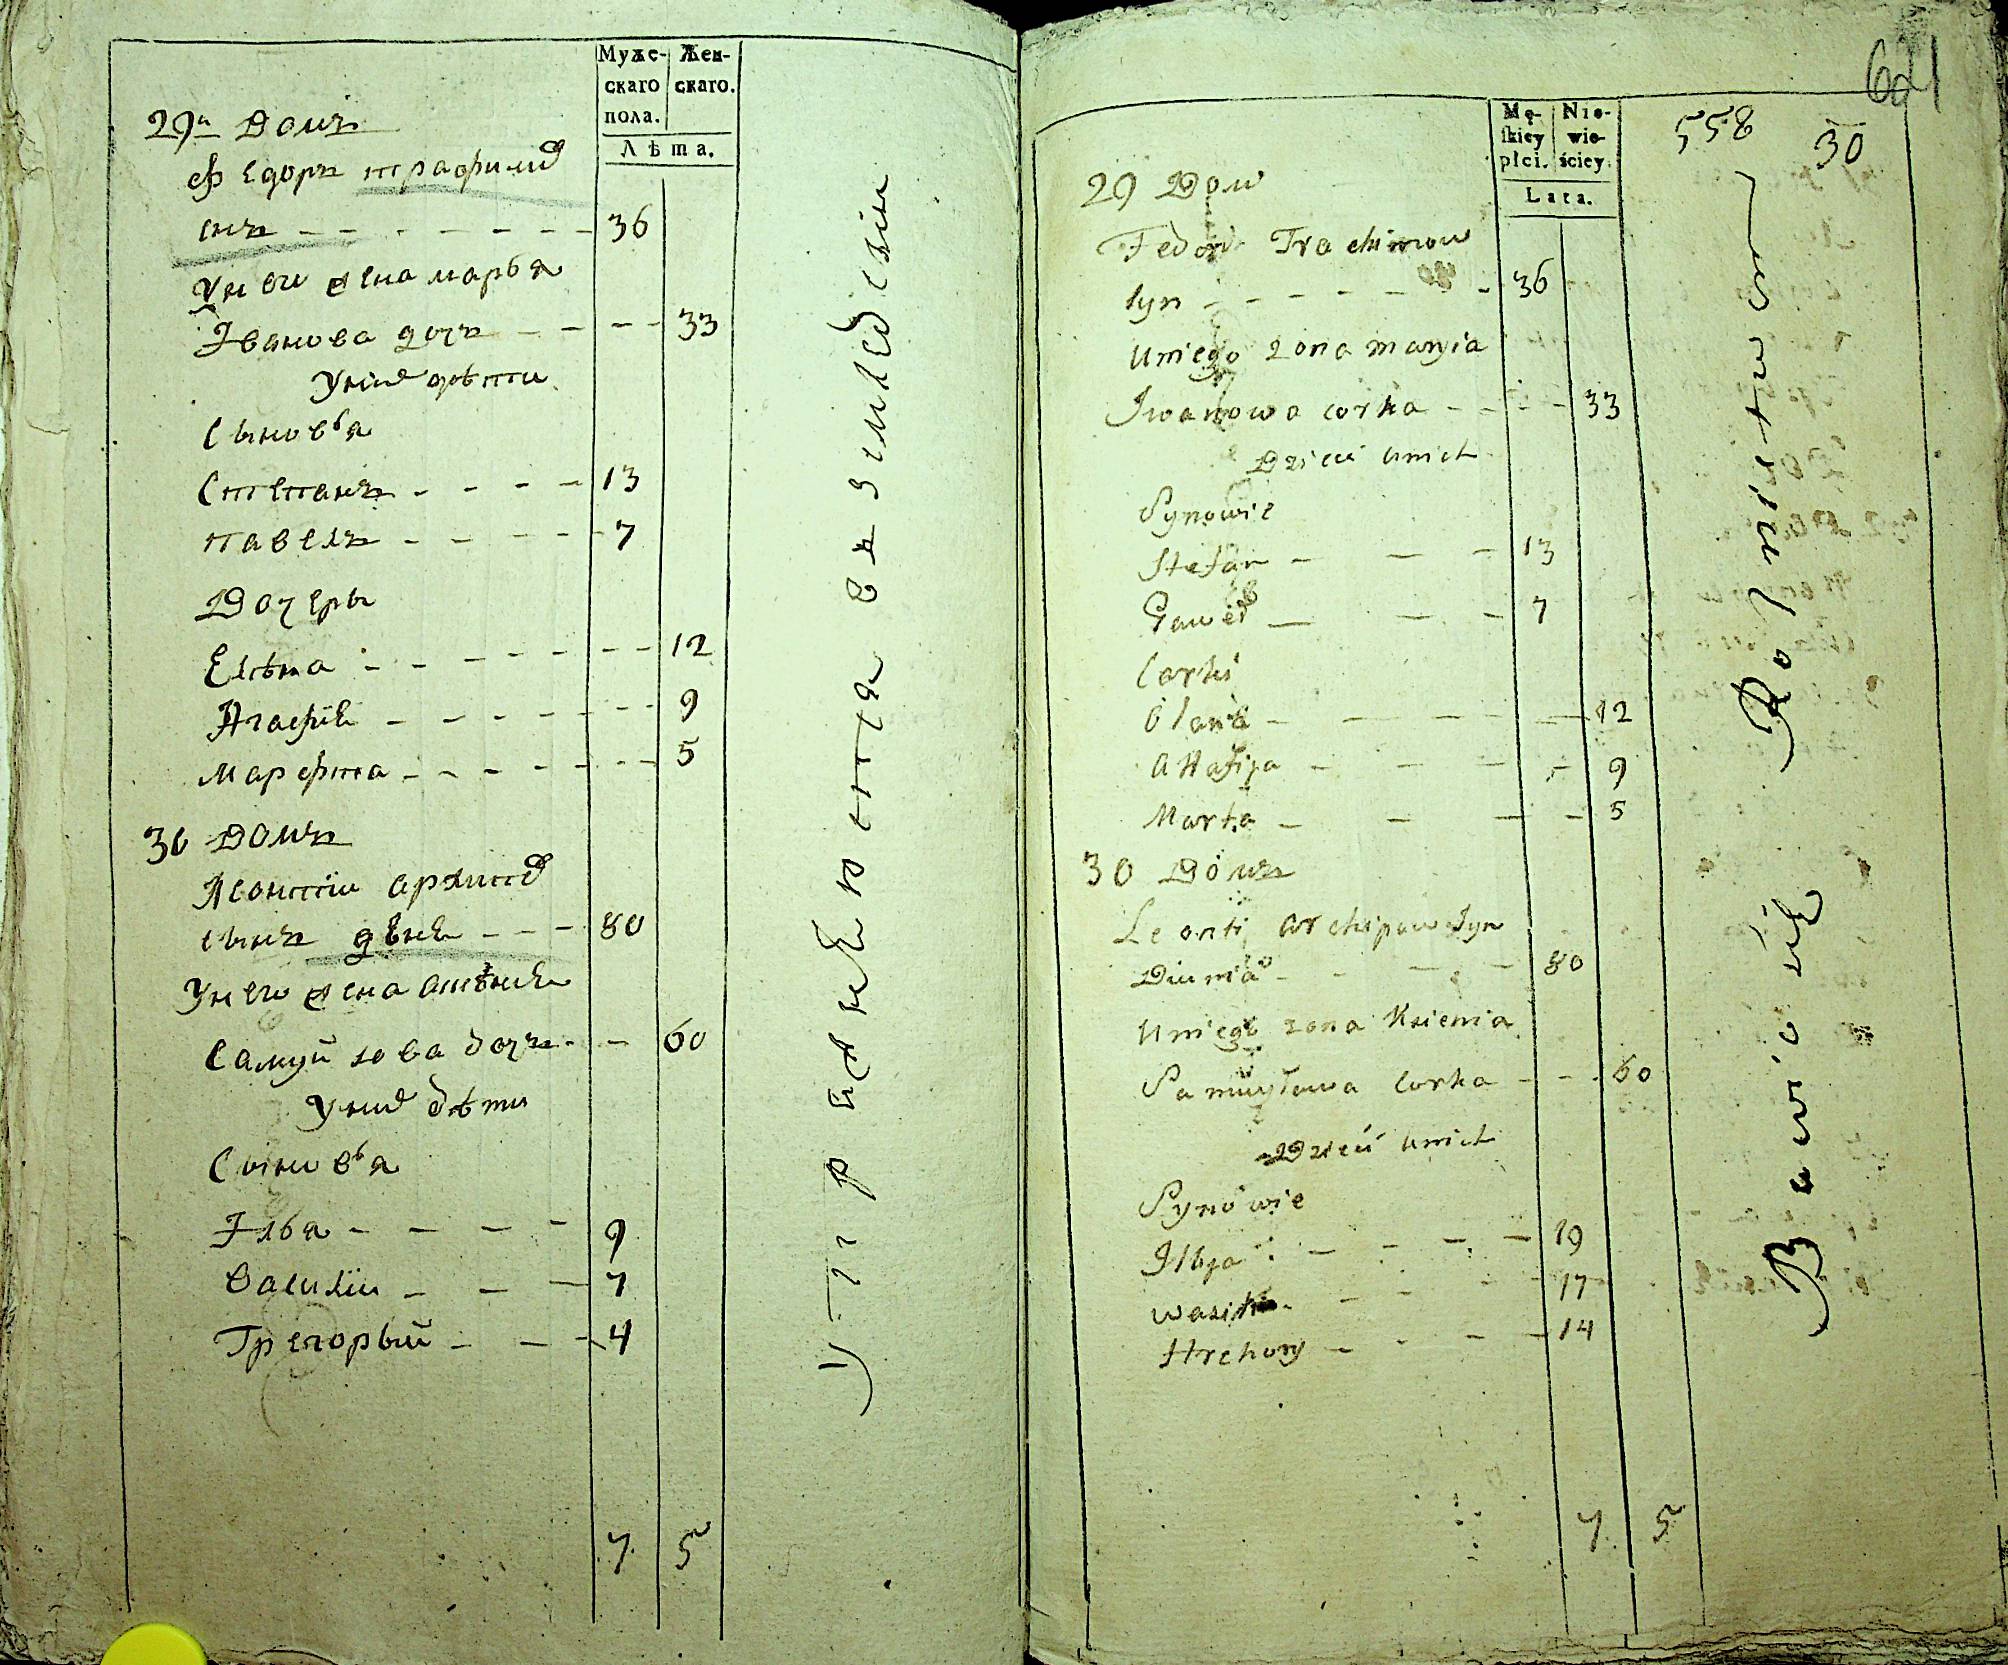 Муже-
скаго
пола.
Жен-
скаго.
Лѣта.
29й Домъ
Федоръ трафимов
снъ - - - - - - - 36
Унего жена марья
Іванова дочъ - - - - 33
Уних дѣти
Сыновья
Степанъ - - - - 13
павелъ - - - - - 7
Дочеры
Елѣна - - - - - - - - 12
Агафіѣ - - - - - - - 9
Марфта - - - - - - - - 5
30 Домъ
Леонтіи архипов
сынъ дѣнѣ - - - 80
Унего жена
Самуйлова дочъ - - 60
Уних дѣти
Сыновья
Ілья - - - - 9
Василіи - - — 7
Григорый - - - - 4
7. 5
упражнѣются въ земледеліи
621
Mę-
skiey
płci.
Nie-
wie-
ściey.
Lata.
558
30
29 Dom
Fedor Trachimow
syn - - - - - - - 36
Uniego żona maryia
Jwanowa corka - - - - 33
Dzieci unich
Synowie
Stefan - — - 13
Paweł — — - 7
Corki
Olana - — — — — 12
Ahafija - — — - - 9
Marta — - — - 5
30 Домъ
Leonti archipow syn
Diunia - - — - 80
Uniego zona Ksienia
Samuyłowa Corka - - - 60
Dzieci unich
Synowie
Ilbja - — - - — 19
- - - - 17
Hrehory — - - — 14
7. 5
Bawić się Rolnictwem